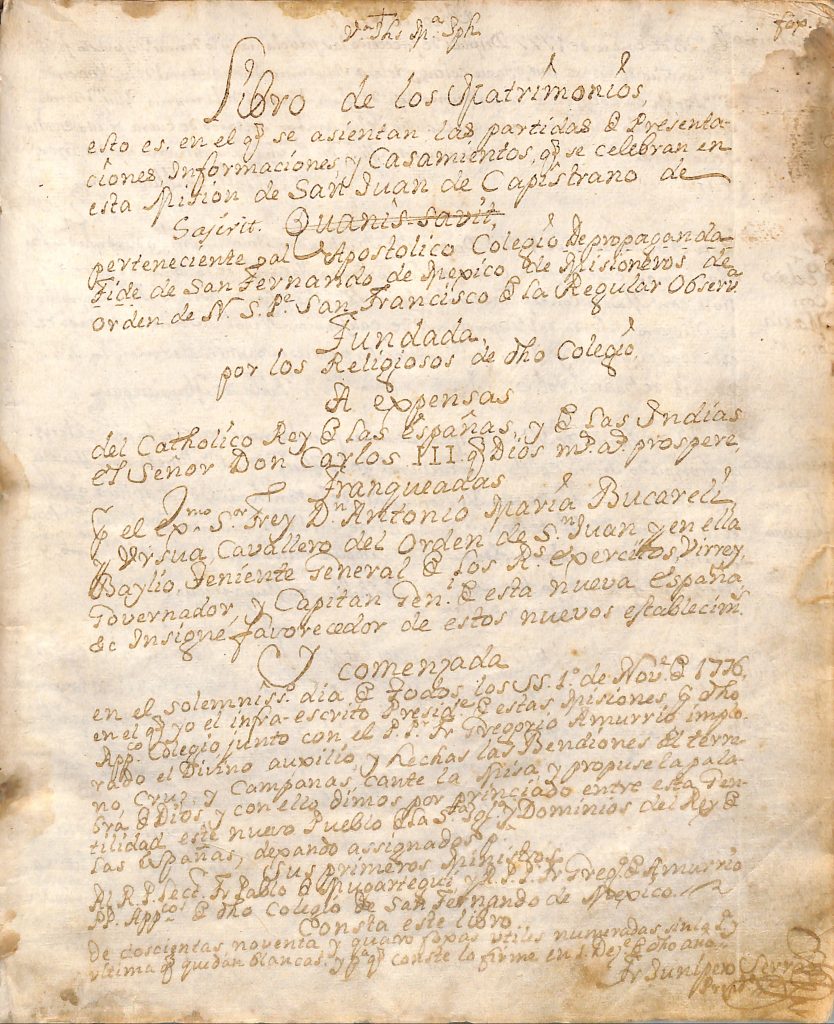 Va Jhs Ma Jph.
fox.
Libro de los Matrimonios,
esto es. en el q̃ se asientan las partidas de Presenta-
ciones, Informaciones, y Casamientos, q̃ se celebran en
esta Mision de San Juan de Capistrano de
Sajirit. Quanis-savit,
perteneciente al Apostolico Colegio de propaganda
Fide de San Fernando de Mexico de Misioneros de
Orden de N. S. Pe. San Francisco de la Regular Observa.
Fundada,
por los Religiosos de dho Colegio,
A expensas
del Catholico Rey de las Españas, y de las Indias
el Señor Don Carlos III. q̃ Dios ms. as. prospere,
Franqueadas
p el Exmo. Sor. Frey Dn Antonio Maria Bucareli,
y Ursua, Cavallero del Orden de Sn. Juan, y en ella
Baylio, Teniente General de los Rs. Exercitos, Virrey,
Governador, y Capitan Genl. de esta nueva España
&c Insigne favorecedor de estos nuevos establecims.
Y comenzada
en el solemniss.o dia de todos los SS. 1.o de Nove. de 1776,
en el q̃ yo el infra-escrito Preside. de estas Misiones, de dho
Appco. Colegio junto con el P. Pr. Fr Gregorio Amurrio implo-
rado el Divino auxilio, y hechas las Bendiones de terre-
no, Cruz, y Campanas, cante la Misa, y propuse la pala-
bra de Dios, y con ello dimos por principiado entre esta Gen-
tilidad, este nuevo Pueblo de la Sta Ygla. y Dominios del Rey de
las Españas, dexando assignados p.
Sus primeros Ministros
Al R. P. Lect. Fr Pablo de Mugartegui, y R. P. Pr. Fr Grego. de Amurrio
PP. Appcos. de dho Colegio de San Fernando de Mexico.
Consta este libro
De doscientas noventa y quatro foxas utiles numeradas sin la 1a y
ultima q̃ quedan blancas; y pa q̃ conste lo firme en 1. de dho año
Fr Junipero Serra
Preste